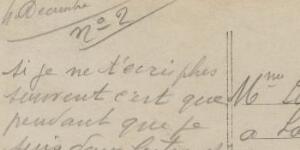 4 Décembre
No 2
si je ne t'ecri plus
souvent c'est que
pendant que je
Mme
a